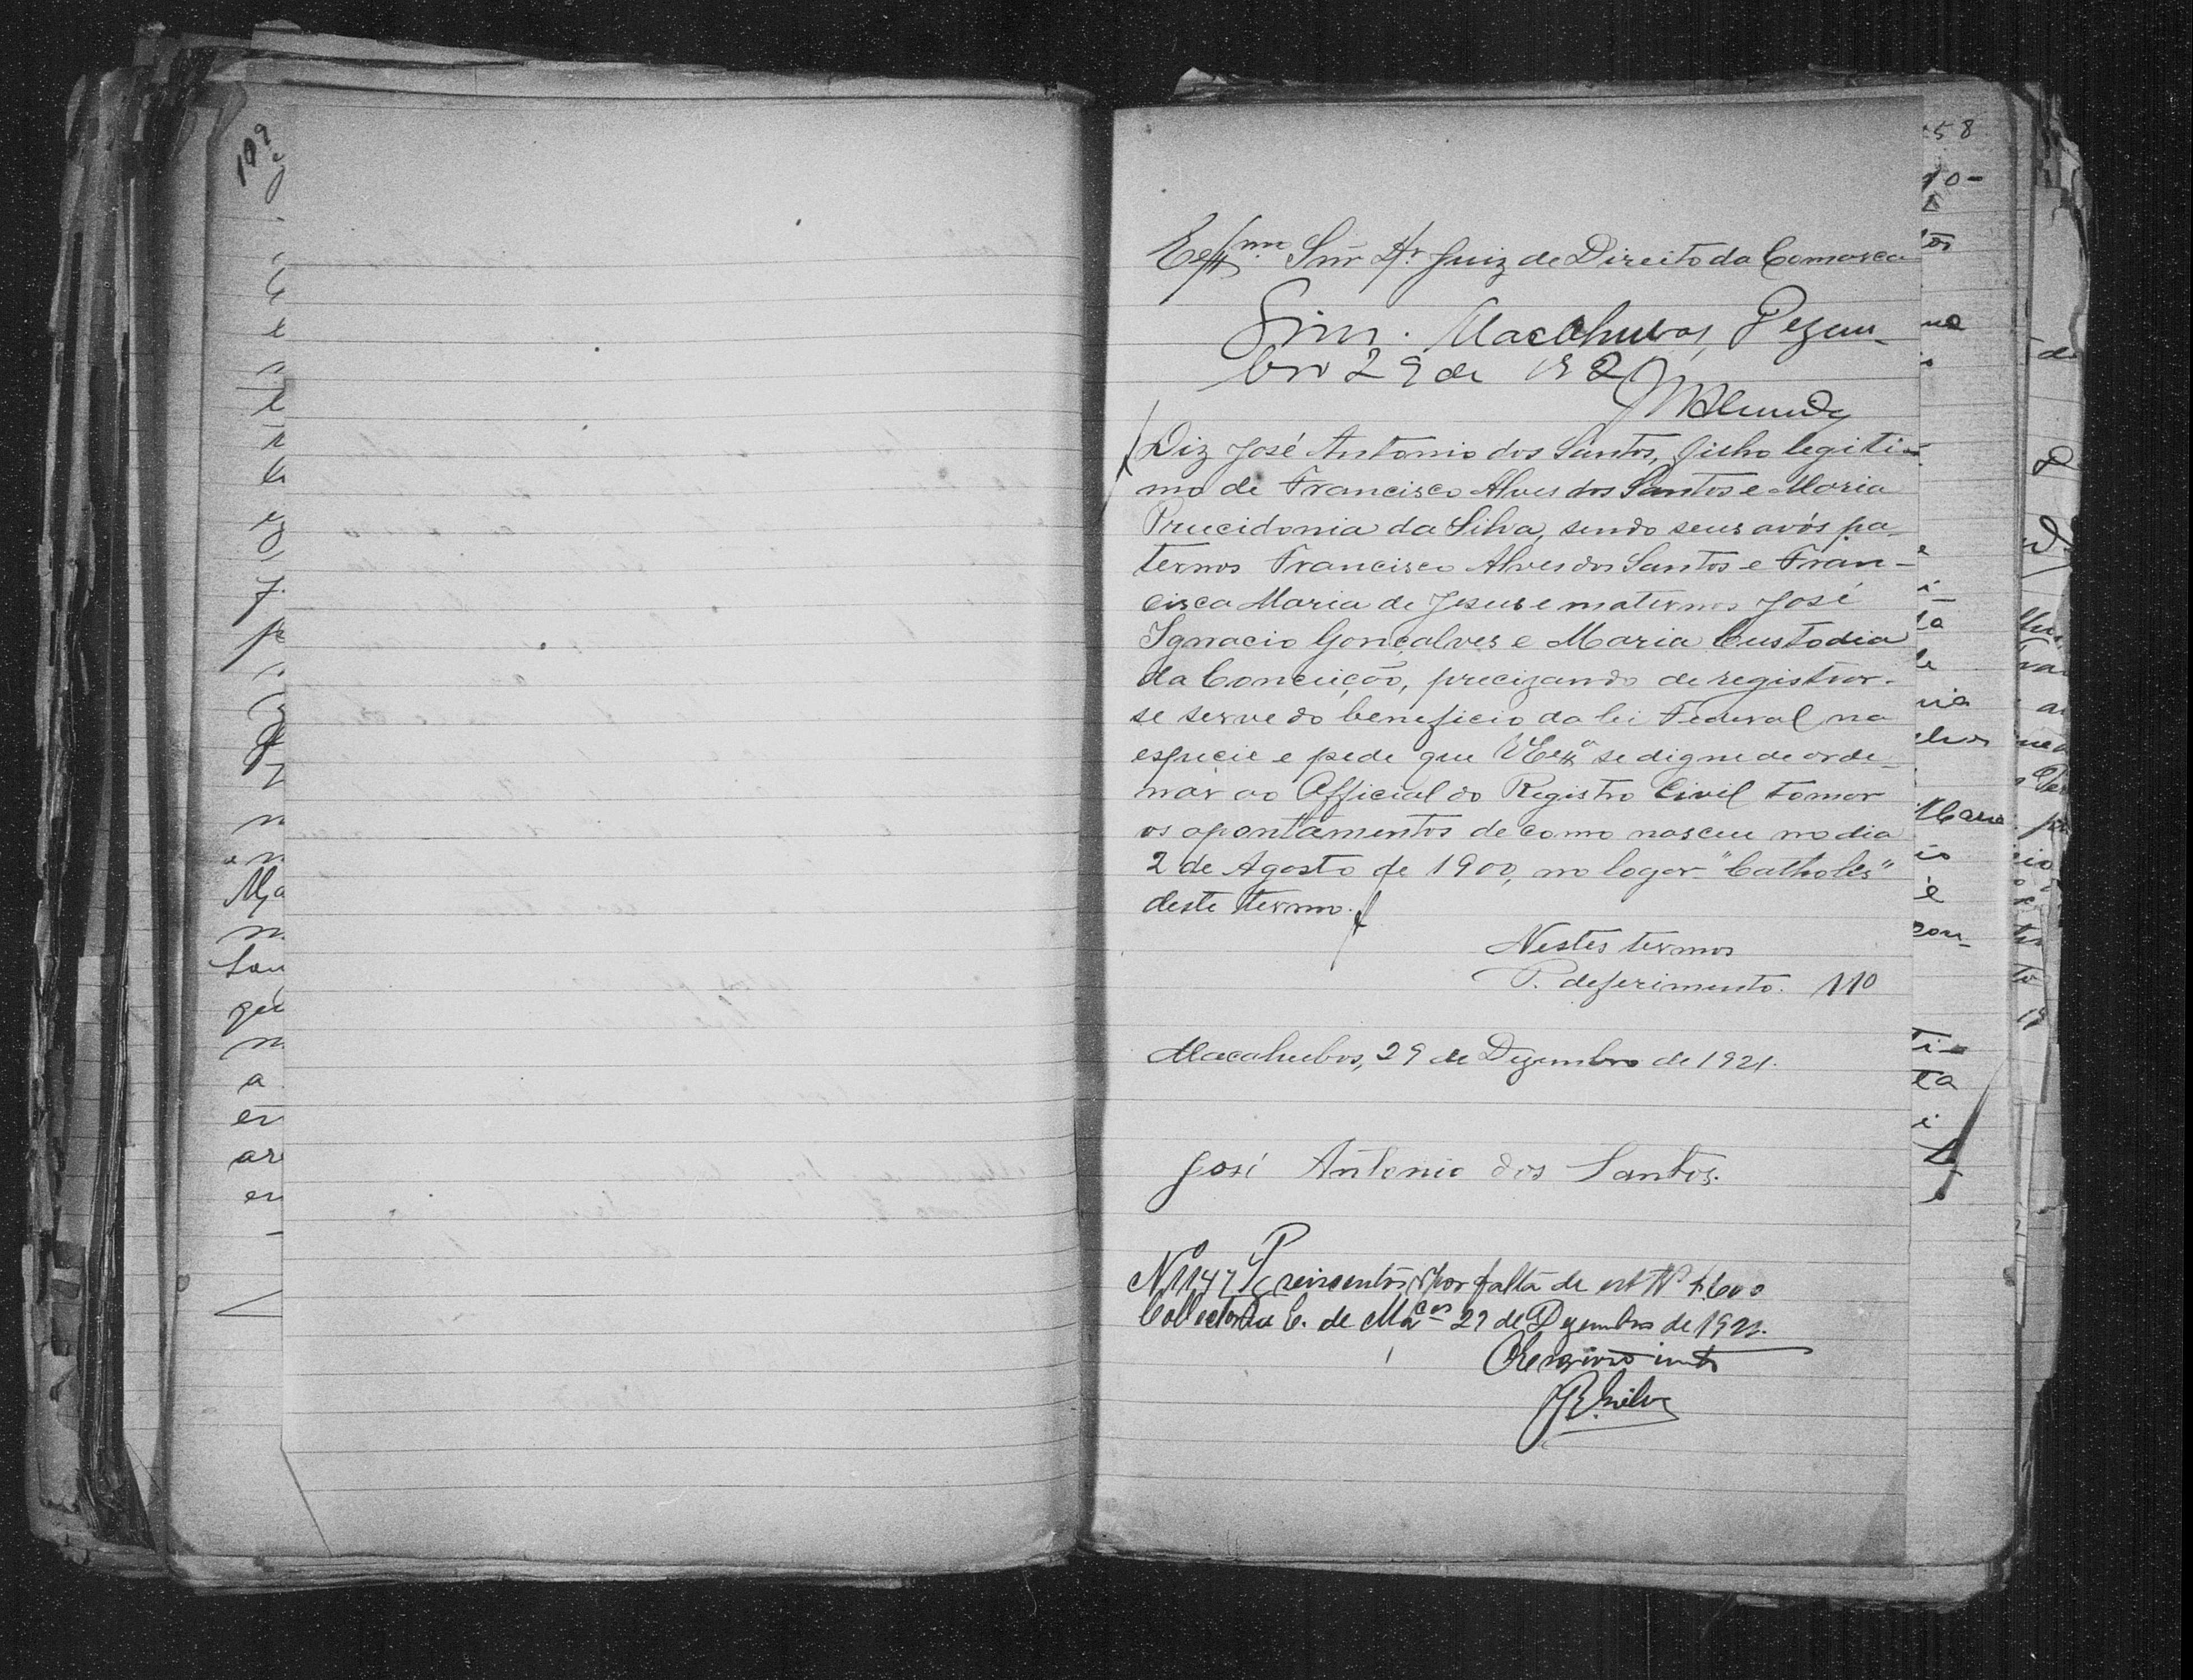 109
58
Exmo Snr Dr Juiz de Direito da Comarca
Sim. Macahubas, Dezem-
bro 29 de 192
Diz José Antonio dos Santos, filho legiti-
mo de Francisco Alves dos Santos e Maria
Prucidonia da Silva, sendo seus avós pa-
ternos Francisco Alves dos Santos e Fran-
cisca Maria de Jesus e maternos José
Ignacio Gonçalves e Maria Custodia
da Conceição, precizando de registrar-
se serve do beneficio da lei Federal na
especie e pede que VExa se digne de orde-
nar ao Official do Registro Civil tomar
os apontamentos de como nasceu no dia
2 de Agosto de 1900, no logar "Catholés"
deste termo.
Nestes termos
P. deferimento. 110
Macahubas, 29 de Dezembro de 1921.
José Antonio dos Santos.
No 1147 por falta de
Collectoria E. de Mcas 29 de Dezembro de 1921.
Silva